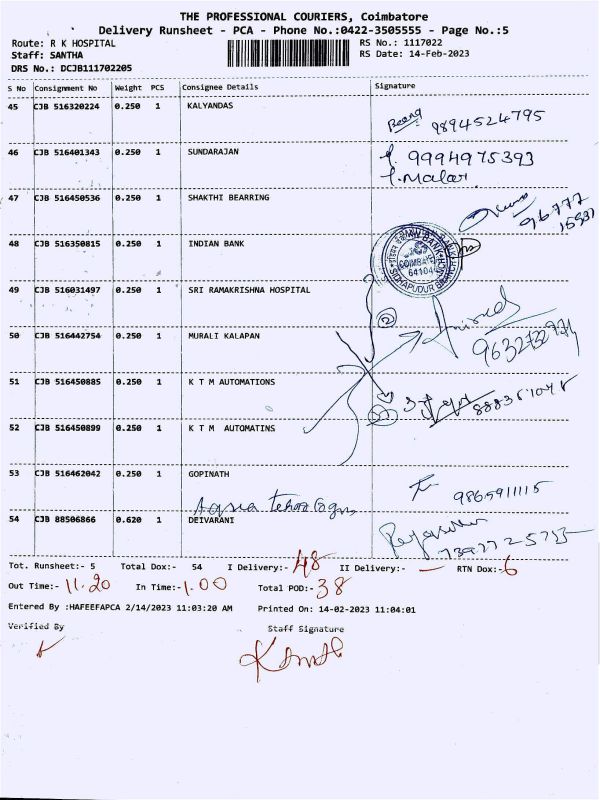 THE PROFESSIONAL COURIERS, Coimbatore
Delivery Runsheet - PCA - Phone No.:0422-3505555 - Page No.:5
Route: R K HOSPITAL RS No.: 1117022
Staff: SANTHA RS Date: 14-Feb-2023
DRS No.: DCJB111702205
S No Consignment No Weight PCS Consignee Details Signature
45 CJB 516320224 0.250 1 KALYANDAS
9894524795
46 CJB 516401343 0.250 1 SUNDARAJAN 9994975393
J. Malar
47 CJB 516450536 0.250 1 SHAKTHI BEARRING
48 CJB 516350815 0.250 1 INDIAN BANK
49 CJB 516031497 0.250 1 SRI RAMAKRISHNA HOSPITAL
2
50 CJB 516442754 0.250 1 MURALI KALAPAN
51 CJB 516450885 0.250 1 K T M AUTOMATIONS
52 CJB 516450899 0.250 1 K T M AUTOMATINS
53 CJB 516462042 0.250 1 GOPINATH
9865911115
54 CJB 88506866 0.620 1 DEIVARANI
Tot. Runsheet:- 5 Total Dox:- 54 I Delivery:- 48 II Delivery:- — RTN Dox:- 6
Out Time:- 11.20 In Time:- 1.00 Total POD:- 38
Entered By :HAFEEFAPCA 2/14/2023 11:03:20 AM Printed On: 14-02-2023 11:04:01
Verified By Staff Signature